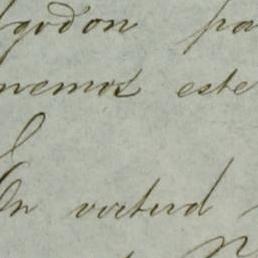 godon pa
nemos este
En virtud